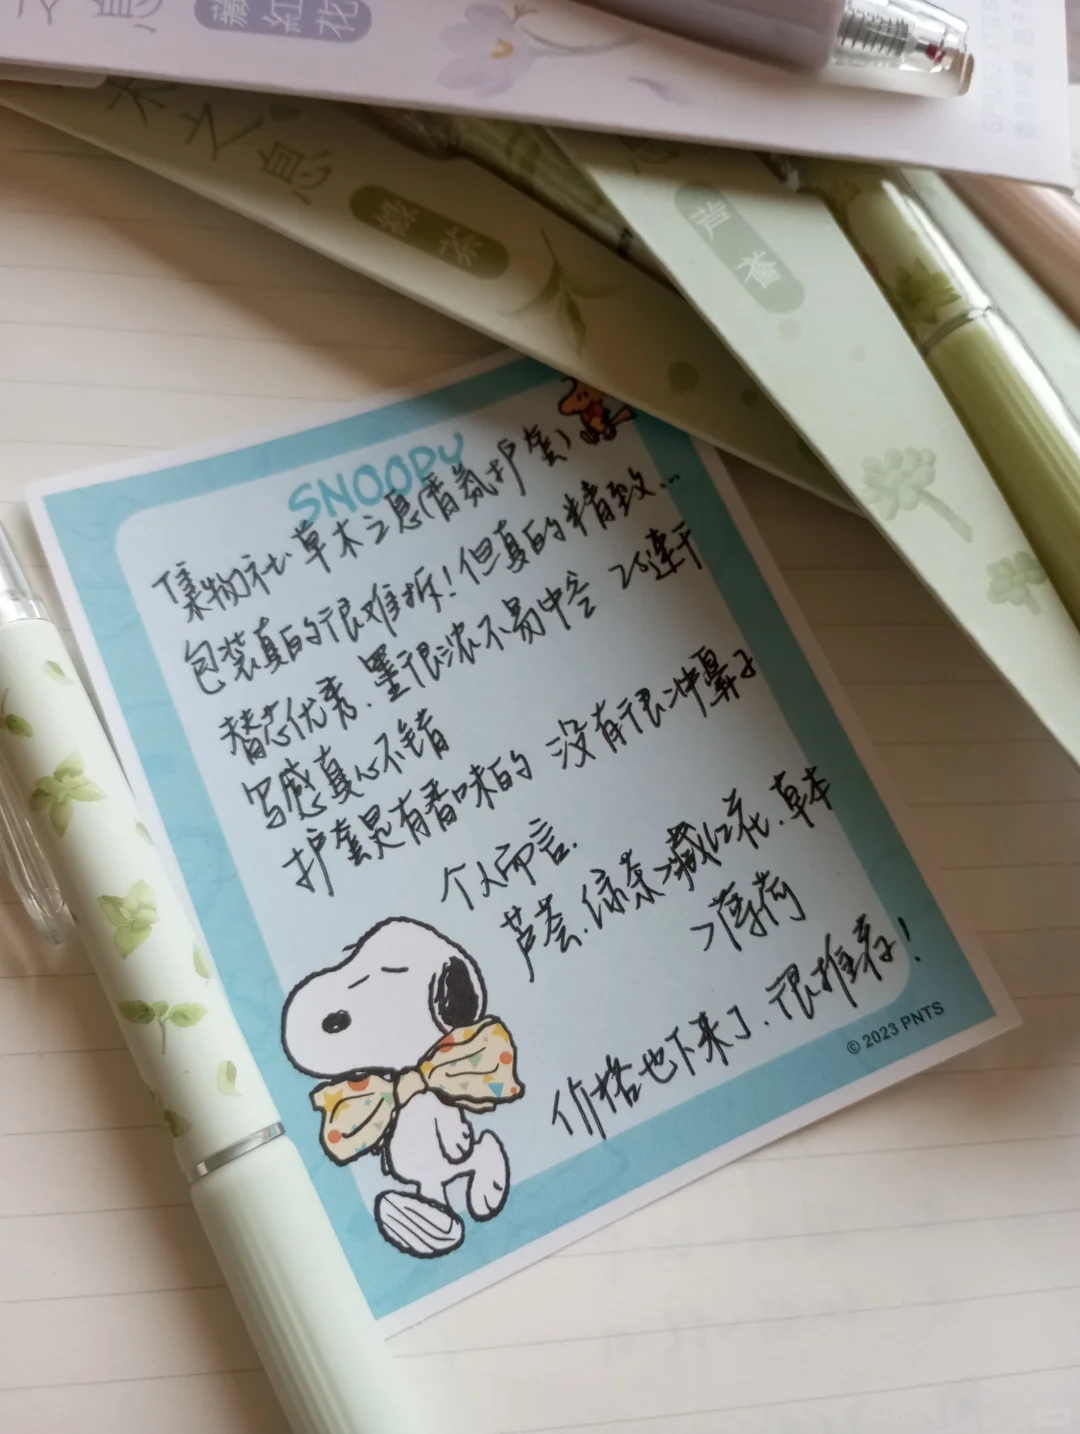 之息
藏紅花
木之息
綠茶
芦荟
SNOOPY
集物社 草木之息(香氛护套)
包装真的很难拆！但真的精致…
替芯优秀.墨很浓不易中空 2s速干
写感真心不错
护套是有香味的 没有很冲鼻子
个人而言.
芦荟.绿茶>藏红花.草本
>薄荷
价格也下来了.很推荐！
© 2023 PNTS